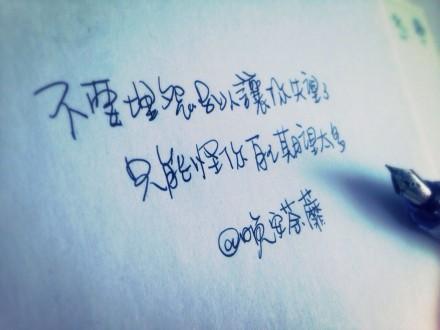 不要埋怨别人讓你失望了
只能怪你自己期望太多
@